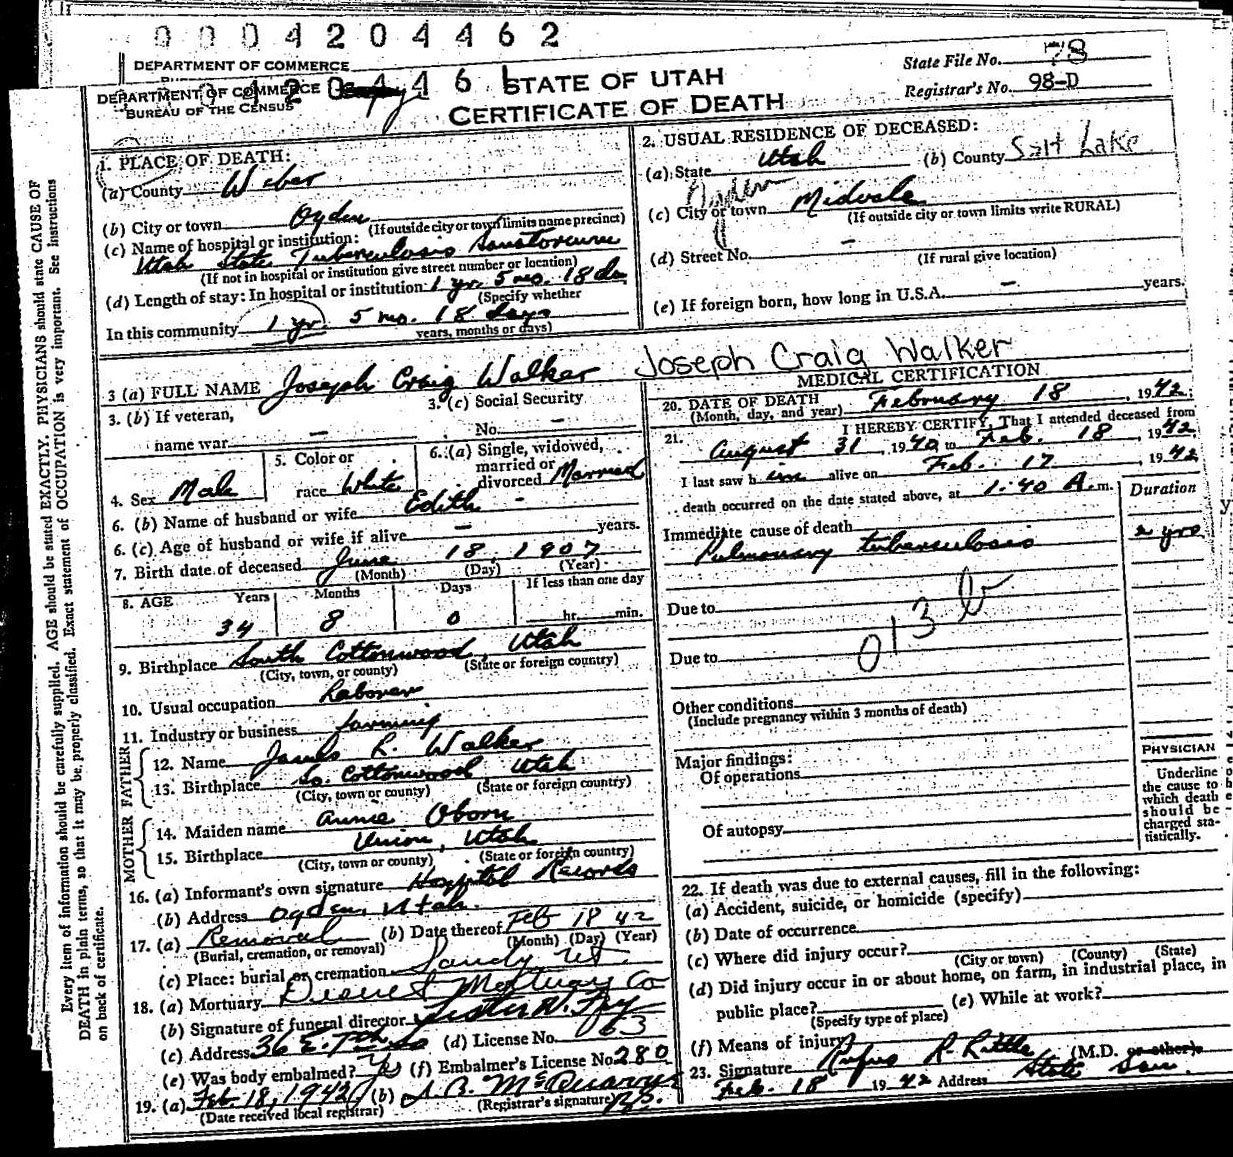 0004204462
DEPARTMENT OF COMMERCE
State File No. 78
DEPARTMENT OF COMMERCE
BUREAU OF THE CENSUS
STATE OF UTAH
Registrar's No. 98-D
CERTIFICATE OF DEATH
Every item of information should be carefully supplied. AGE should be stated EXACTLY. PHYSICIANS should state CAUSE OF
DEATH in plain terms, so that it may be properly classified. Exact statement of OCCUPATION is very important. See Instructions
on back of certificate.
1. PLACE OF DEATH:
(a) County Weber
(b) City or town Ogden
(If outside city or town limits name precinct)
(c) Name of hospital or institution:
Utah State Tuberculosis Sanatorium
(If not in hospital or institution give street number or location)
(d) Length of stay: In hospital or institution 1 yr. 5 mo. 18 da
(Specify whether
In this community 1 yr. 5 mo. 18 days
years, months or days)
2. USUAL RESIDENCE OF DECEASED:
(a) State Utah (b) County Salt Lake
Ogden
(c) City or town Midvale
(If outside city or town limits write RURAL)
(d) Street No. –
(If rural give location)
(e) If foreign born, how long in U.S.A. – years.
3 (a) FULL NAME Joseph Craig Walker Joseph Craig Walker
3. (b) If veteran,
name war –
3. (c) Social Security
No. –
4. Sex Male
5. Color or
race White
6. (a) Single, widowed,
married or
divorced Married
6. (b) Name of husband or wife Edith -
6. (c) Age of husband or wife if alive – years.
7. Birth date of deceased June 18 1907
(Month) (Day) (Year)
8. AGE Years Months Days If less than one day
34 8 0 hr. min.
9. Birthplace South Cottonwood, Utah
(City, town, or county) (State or foreign country)
10. Usual occupation Laborer
11. Industry or business farming
FATHER
12. Name James L. Walker
13. Birthplace So. Cottonwood, Utah
(City, town or county) (State or foreign country)
MOTHER
14. Maiden name Annie Oborn
15. Birthplace Union, Utah
(City, town or county) (State or foreign country)
16. (a) Informant's own signature Hospital Records
(b) Address Ogden, Utah.
17. (a) Removal (b) Date thereof Feb 18 42
(Burial, cremation, or removal) (Month) (Day) (Year)
(c) Place: burial or cremation Sandy Ut.
18. (a) Mortuary Deseret Mortuary Co
(b) Signature of funeral director W. Fry
(c) Address 36 E. 7th So (d) License No. 63
(e) Was body embalmed? Yes (f) Embalmer's License No 280
19. (a) Feb. 18, 1942 (b)
(Date received local registrar) (Registrar's signature)
MEDICAL CERTIFICATION
20. DATE OF DEATH
(Month, day, and year) February 18, 1942;
21. I HEREBY CERTIFY, That I attended deceased from
August 31, 1940 to Feb. 18, 1942,
I last saw him alive on Feb. 17, 1942
death occurred on the date stated above, at 1:40 A.m.
Duration
Immediate cause of death
Pulmonary tuberculosis 2 yrs
Due to
013 b
Due to
Other conditions
(Include pregnancy within 3 months of death)
Major findings:
Of operations
Of autopsy
PHYSICIAN
Underline
the cause to
which death
should be
charged sta-
tistically.
22. If death was due to external causes, fill in the following:
(a) Accident, suicide, or homicide (specify)
(b) Date of occurrence
(c) Where did injury occur?
(City or town) (County) (State)
(d) Did injury occur in or about home, on farm, in industrial place, in
public place? (e) While at work?
(Specify type of place)
(f) Means of injury
23. Signature Rufus R. Little (M.D. or other).
Feb. 18 1942 Address State San.